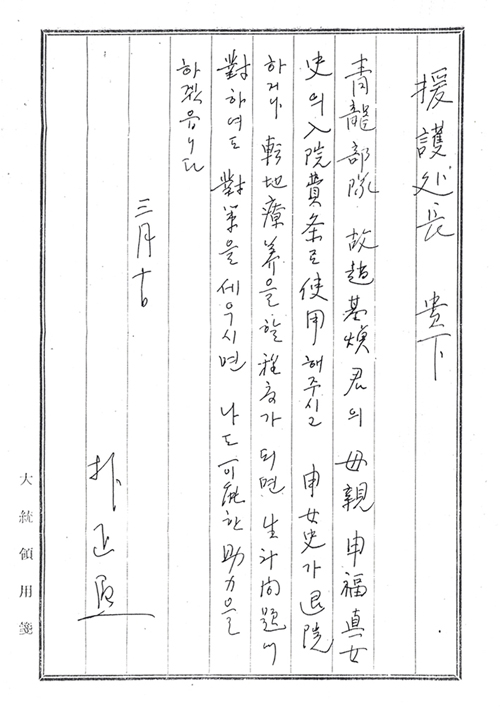 援護処長 貴下
青龍部隊 故趙基煥君의 母親 申福眞女
史의 入院費条로 使用해주시고 申女史가 退院
하거나 転地療養을 할 程度가 되면 生計問題에
対하여도 対策을 세우시면 나도 可能한 助力을
하겠읍니다
三月十
朴正熙
大統領用箋